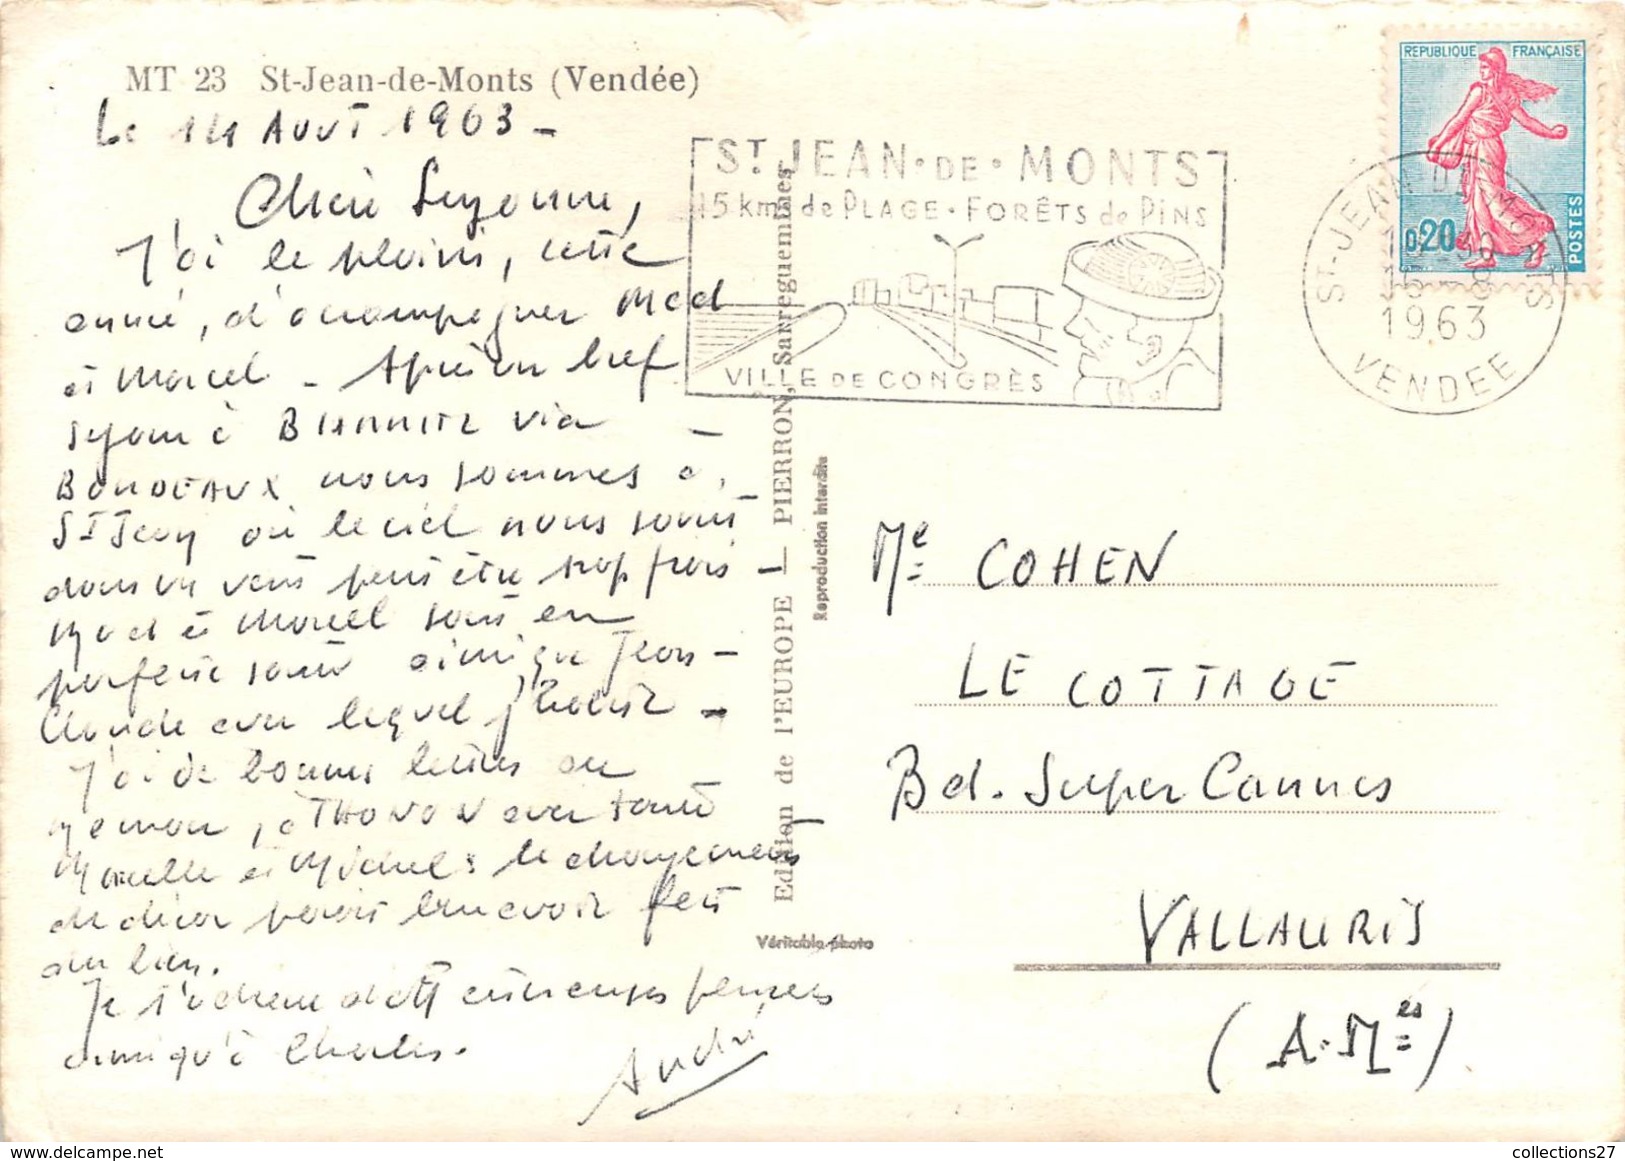 MT 23 St-Jean-de-Monts (Vendée)
Le 14 Août 1963 -
Chère Suzanne,
J'ai le plaisir, cette
année, d'accompagner Mad
et Marcel - Après un bref
séjour à BIARRITZ via
BORDEAUX nous sommes à
St Jean où le ciel nous sourit
dans un vent peut être trop frais -
Mad et Marcel sont en
parfaite santé ainsi que Jean-
Claude avec lequel
J'ai de bonnes lettres de
, à THONON avec
et Michel : le changement
de décor paraît leur avoir fait
du bien.
Je t'adresse d'affectueuses pensées
ainsi qu'à Charles.
André
ST JEAN • DE • MONTS
15 kms de PLAGE • FORÊTS de PINS
VILLE DE CONGRÈS
ST-JEAN-DE-MONTS
1963
VENDEE
REPUBLIQUE FRANÇAISE
0,20
POSTES
Edition de l'EUROPE — PIERRON, Sarreguemines
Reproduction interdite
Véritable photo
Me COHEN
LE COTTAGE
Bd. Super Cannes
VALLAURIS
(A. Mes)
collections27